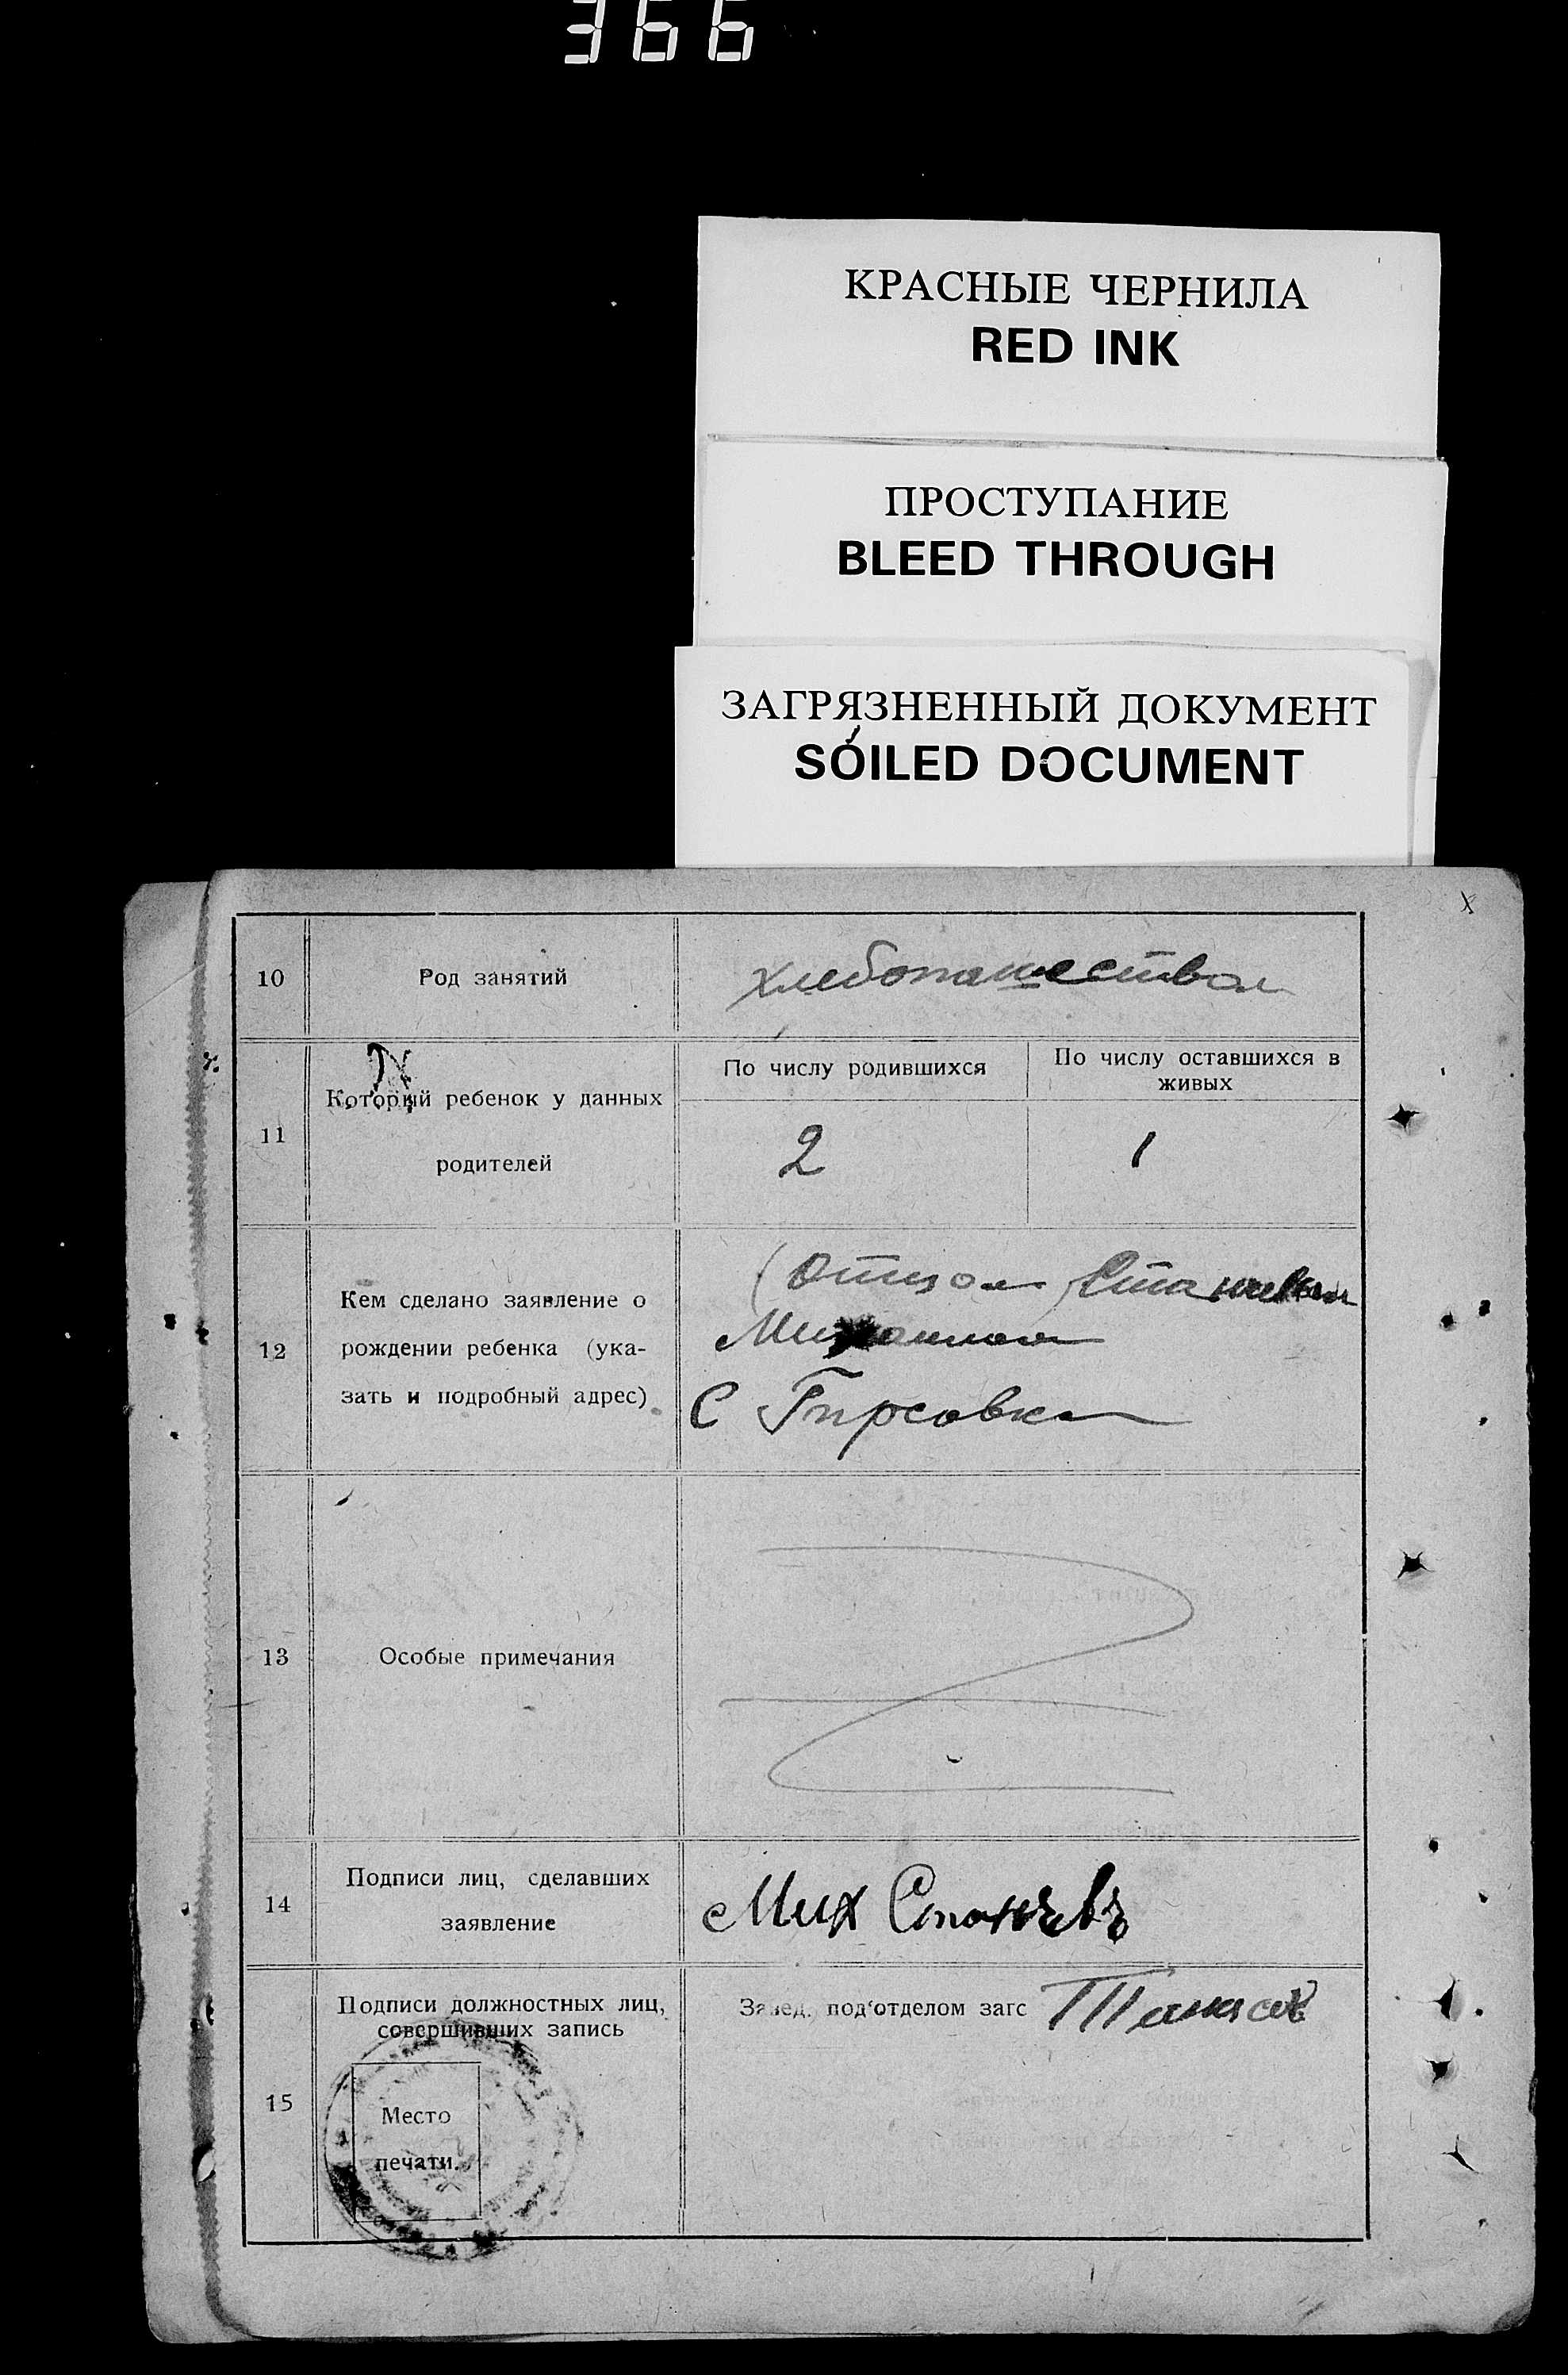 366
КРАСНЫЕ ЧЕРНИЛА
RED INK
ПРОСТУПАНИЕ
BLEED THROUGH
ЗАГРЯЗНЕННЫЙ ДОКУМЕНТ
SOILED DOCUMENT
10
Род занятий
хлебопашество
11
Который ребенок у данных
родителей
По числу родившихся
По числу оставшихся в
живых
2
1
12
Кем сделано заявление о
рождении ребенка (ука-
зать и подробный адрес)
Отцом
С
13
Особые примечания
14
Подписи лиц, сделавших
заявление
Мих Станчевъ
15
Подписи должностных лиц,
совершивших запись
Место
печати.
Завед. под'отделом загс